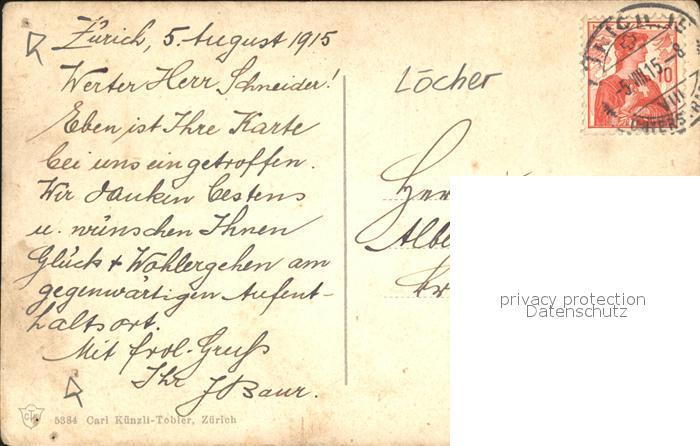 Zürich, 5. August 1915
Werter Herr Schneider!
Eben ist Ihre Karte
bei uns eingetroffen.
Wir danken bestens
u. wünschen Ihnen
Glück + Wohlergehen am
gegenwärtigen Aufent-
haltsort.
Mit frdl. Gruß
Ihr J Baur.
5384 Carl Künzli-Tobler, Zürich
Löcher
10
-5.VIII.15.-8
VIII
Her
Albe
privacy protection
Datenschutz